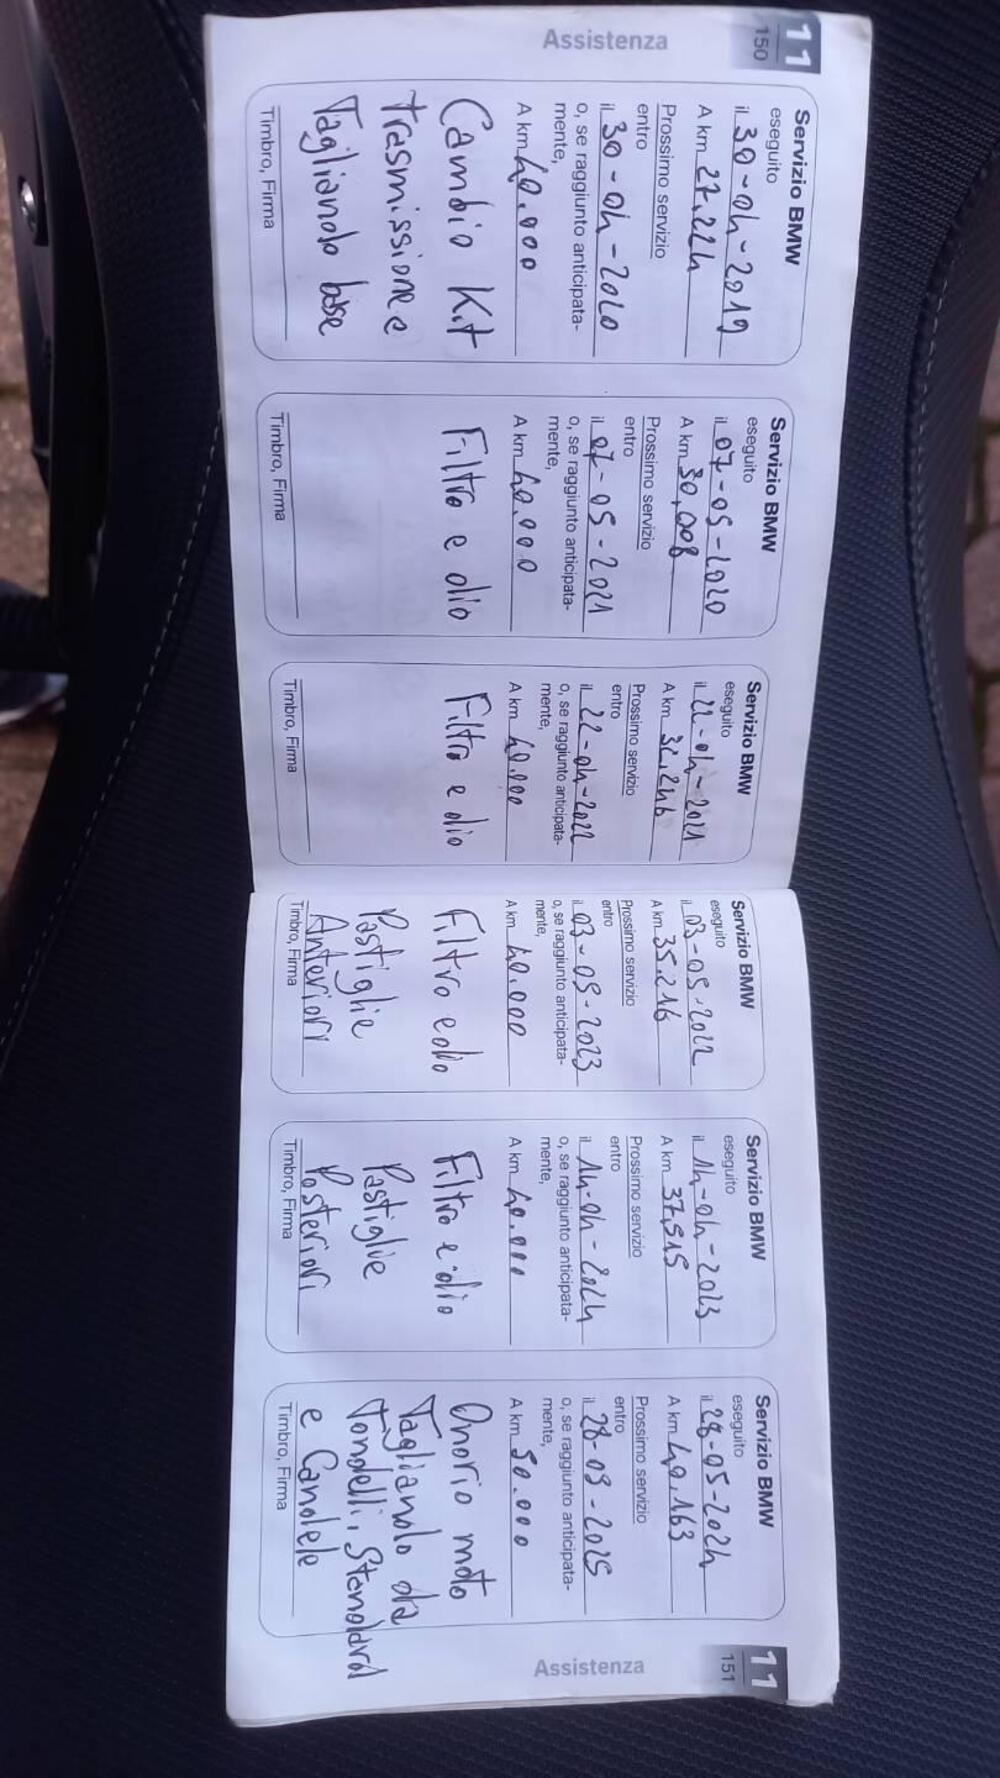 11
150
Assistenza
Servizio BMW
eseguito
il 30-04-2019
A km 27.224
Prossimo servizio
entro
il 30-04-2020
o, se raggiunto anticipata-
mente,
A km 40.000
Cambio Kit
trasmissione e
Tagliando base
Timbro, Firma
Servizio BMW
eseguito
il 07-05-2020
A km 30,008
Prossimo servizio
entro
il 07-05-2021
o, se raggiunto anticipata-
mente,
A km 40.000
Filtro e olio
Timbro, Firma
Servizio BMW
eseguito
il 22-04-2021
A km 32.246
Prossimo servizio
entro
il 22-04-2022
o, se raggiunto anticipata-
mente,
A km 40.000
Filtro e olio
Timbro, Firma
Servizio BMW
eseguito
il 03-05-2022
A km 35.216
Prossimo servizio
entro
il 03-05-2023
o, se raggiunto anticipata-
mente,
A km 40.000
Filtro e olio
Pastiglie
Anteriori
Timbro, Firma
Servizio BMW
eseguito
il 14-04-2023
A km 37,515
Prossimo servizio
entro
il 14-04-2024
o, se raggiunto anticipata-
mente,
A km 40.000
Filtro e olio
Pastiglie
Posteriori
Timbro, Firma
Servizio BMW
eseguito
il 28-05-2024
A km 40.163
Prossimo servizio
entro
il 28-03-2025
o, se raggiunto anticipata-
mente,
A km 50.000
Onorio moto
Tagliando da
Tondelli, Standard
e Candele
Timbro, Firma
11
151
Assistenza